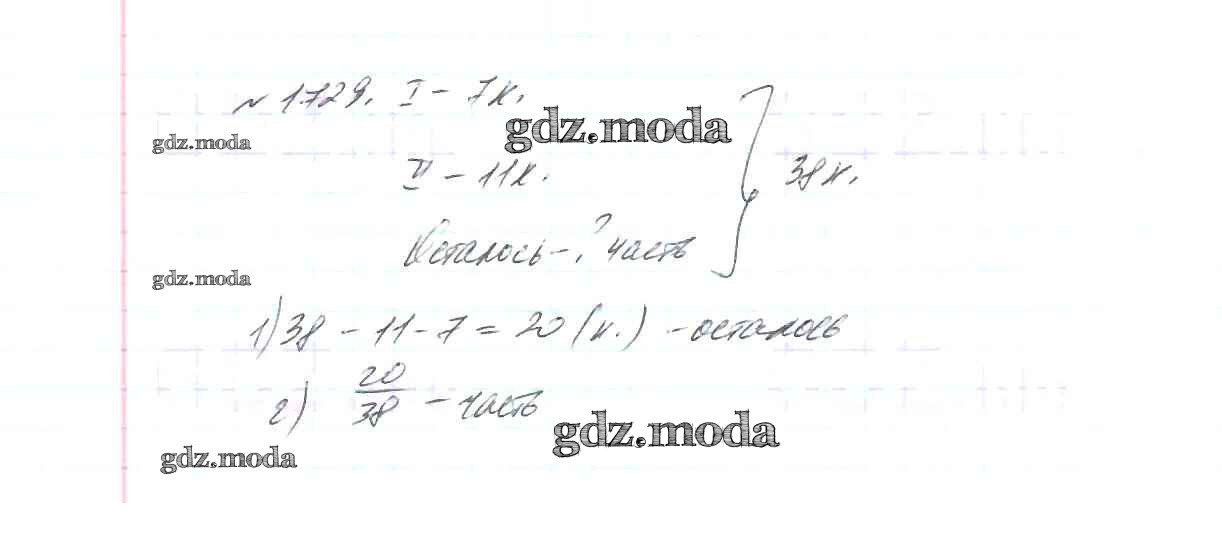 № 1729. I – 7к.
gdz.moda
gdz.moda
II – 11к.
38 к.
Осталось – ? часть
gdz.moda
1) 38 – 11 – 7 = 20 (к.) – осталось
2) 20/38 – часть
gdz.moda
gdz.moda